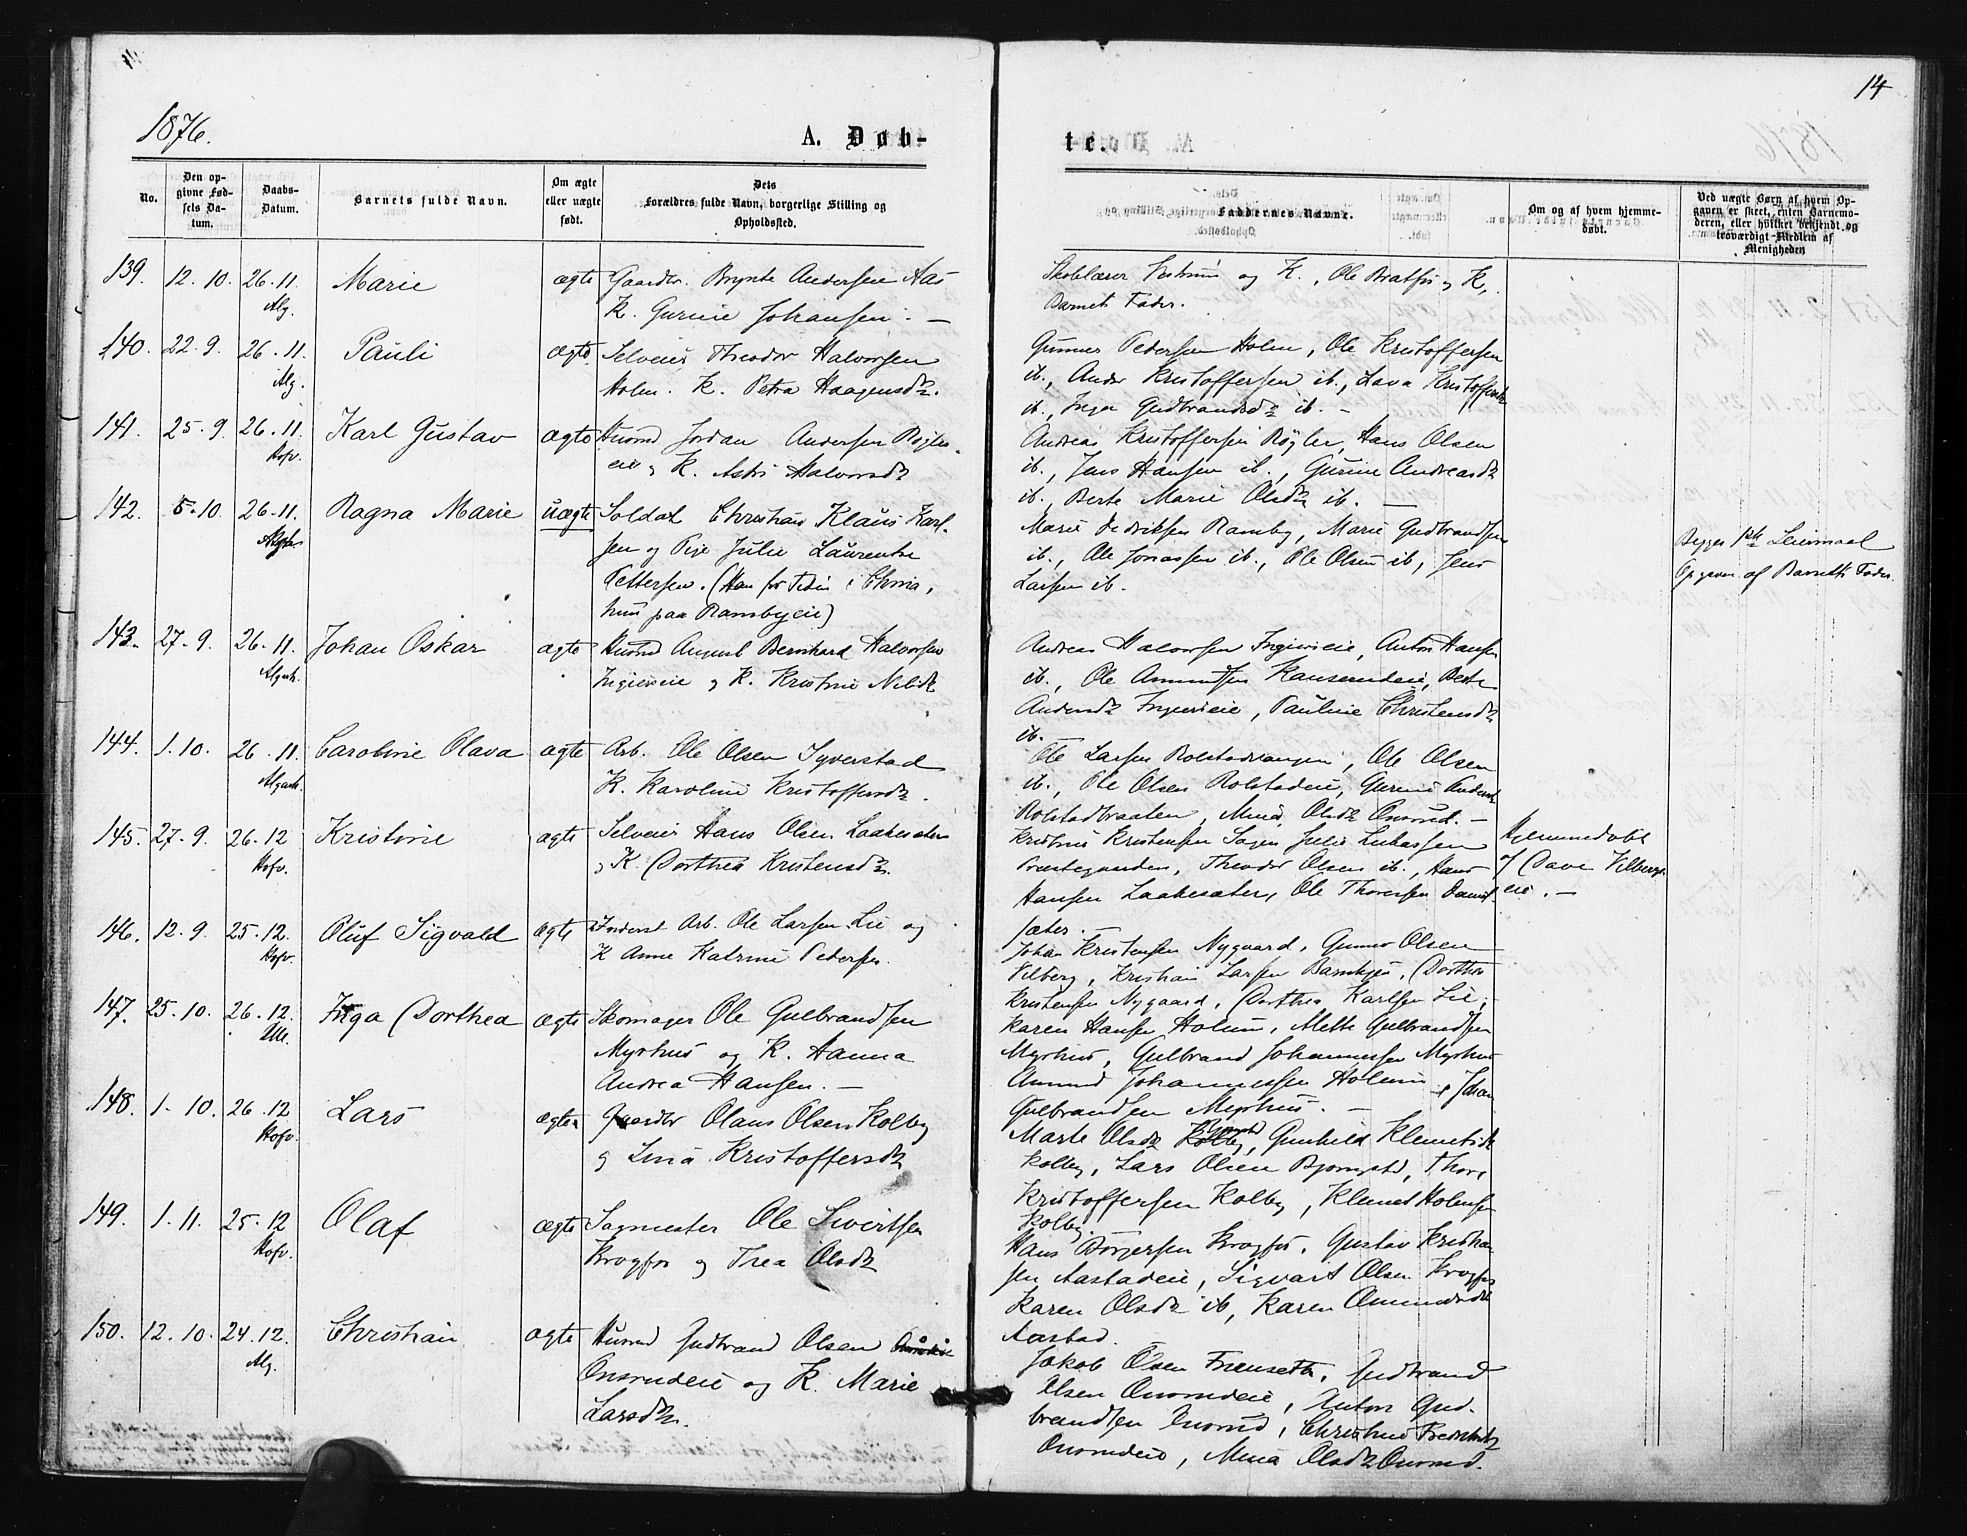 14
1876.
A. Døb-
te.
No.
Den op-
givne Fød-
sels Da-
tum.
Daabs-
Datum.
Barnets fulde Navn.
Om ægte
eller uægte
født.
Dets
Forældres fulde Navn, borgerlige Stilling og
Opholdssted.
Faddernes Navne.
Om og af hvem hjemme-
døbt.
Ved uægte Børn af hvem Op-
gaven er skeet, enten Barnemo-
deren, eller hvilket bekjendt og
troværdigt Medlem af
Menigheden
139. 12.10. 26.11. Marie ægte Gaardbr. Brynte Andersen Aas
Alg. K. Gurine Johansen. —
Skolelærer og K., Ole Bratfos og K,
Barnets Fader.
140. 22.9. 26.11. Pauli ægte Selveier Theodor Halvorsen
Alg. Holm. K. Petra Haagensdtr.
Gunner Pedersen Holm, Ole Kristoffersen
ib., Ander Kristoffersen ib., Lava Kristoffersdtr
ib., Inger Gudbrandsdtr ib. —
141. 25.9 26.11. Karl Gustav ægte Husmd Jordan Andersen Røgler-
Hofv. eie og K. Astri Halvorsdtr
Andreas Kristoffersen Røgler, Hans Olsen
ib., Jens Hansen ib., Gurine Andreasdtr
ib., Berte Marie Olsdtr ib. —
142. 5.10. 26.11. Ragna Marie uægte Soldat Christian Klaus Karl-
sen og Pige Julie Laurentse
Pettersen. (Han for Tiden i Chria,
hun paa Rambyeie)
Marie Dedriksen Ramby, Marie Gudbrandsen
ib., Ole Jonassen ib., Ole Olsen ib, Jens
Larsen ib.
Begges 1ste Leiermaal
Opgaven af Barnets Fader.
143. 27.9. 26.11. Johan Oskar ægte Husmd August Bernhard Halvorsen
Algarh. Ingierseie og K. Kristine Nilsdtr
Andreas Halvorsen Ingierseie, Anton Hansen
ib., Ole Amundsen Hanserudeie, Berte
Andersdtr Ingierseie, Pauline Christensdtr
ib.
144. 1.10. 26.11. Caroline Olava ægte Arb. Ole Olsen Syverstad
Algarh. K. Karoline Kristoffersdtr.
Ole Larsen Rolstadvangen, Ole Olsen
ib., Ole Olsen Rolstadeie, Gurine Andersdtr
Rolstadbraaten, Mina Olsdtr Onsrud. —
145. 27.9. 26.12 Kristine ægte Selveier Hans Olsen Laakesæter
Hofv. og K. Dorthea Kristensdtr.
Kristine Kristensen Julie Lukassen
Præstegaarden, Theodor Olsen ib., Hans
Hansen Laakesæter, Ole Thoresen
sæter. —
Hjemmedøbt
af Dave Vilbergs-
eie. —
146. 12.9. 25.12. Oluf Sigvald ægte Inderst Arb. Ole Larsen Lie og
Hofv. K Anne Katrine Pedersen.
Johan Kristensen Nygaard, Gunner Olsen
Vilberg, Kristian Larsen, Dorthea
Kristensen Nygaard, Dorthea Karlsen Lie.
147. 25.10. 26.12. Inga Dorthea ægte Skomager Ole Gulbrandsen
Ulls. Myrhus og K. Hanna
Andrea Hansen. —
Karen Hansen Holum, Mette Gulbrandsen
Myrhus, Gulbrand Johannessen Myrhus
Amund Johannessen Holum og Johan
Gulbrandsen Myrhus. —
148. 1.10. 26.12 Lars ægte Gaardbr Olaus Olsen Kolby
Hofv. og Lina Kristoffersdtr
Marte Olsdtr Kolby, Gunhild Klemetsdtr
Kolby, Lars Olsen Bjørnstd, Thore
Kristoffersen Kolby, Klemet Holmsen
Kolby.
149. 1.11. 25.12 Olaf ægte Sagmester Ole Sivertsen
Hofv. Krogfos og Thea Olsdtr
Hans Børgersen Krogfos, Gustav Kristian-
sen Aastadeie, Sigvart Olsen Krogfos
Karen Olsdtr ib, Karen Amundsdtr
Aastad.
150. 12.10. 24.12. Christian ægte Husmd Gudbrand Olsen
Alg. Onsrudeie og K. Marie
Larsdtr.
Jakob Olsen Fræseth, Gudbrand
Olsen Onsrudeie, Anton Gud-
brandsen Onsrud, Christine Fredriksdtr
Onsrudeie, Mina Olsdtr Onsrud.